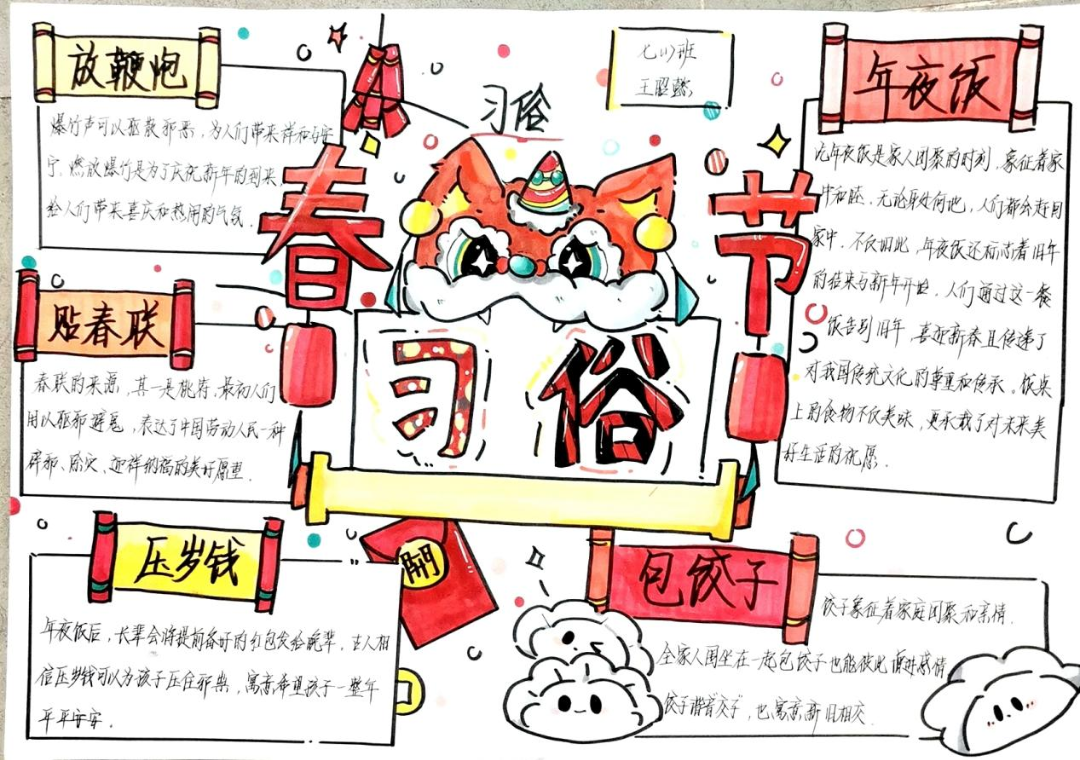 放鞭炮
爆竹声可以驱散邪恶，为人们带来祥和与安
宁．燃放爆竹是为了庆祝新年的到来
给人们带来喜庆和热闹的气氛．
习俗
七(1)班
王昭懿
年夜饭
吃年夜饭是家人团聚的时刻．象征着家
中和睦．无论身处何地，人们都会赶回
家中．不仅如此，年夜饭还标志着旧年
的结束与新年开始．人们通过这一餐
饭告别旧年 喜迎新春且传递了
对我国传统文化的尊重和传承．饭桌
上的食物不仅美味，更承载了对未来美
好生活的祝愿．
春节
习俗
贴春联
春联的来源，其一是桃符．最初人们
用以驱邪避鬼，表达了中国劳动人民一种
辟邪、除灾、迎祥纳福的美好愿望．
压岁钱
年夜饭后，长辈会将提前备好的红包发给晚辈．古人相
信压岁钱可以为孩子压住邪祟，寓意希望孩子一整年
平平安安．
開
包饺子
饺子象征着家庭团聚和亲情．
全家人围坐在一起包饺子也能彼此增进感情
饺子谐音"交子"，也寓意新旧相交．